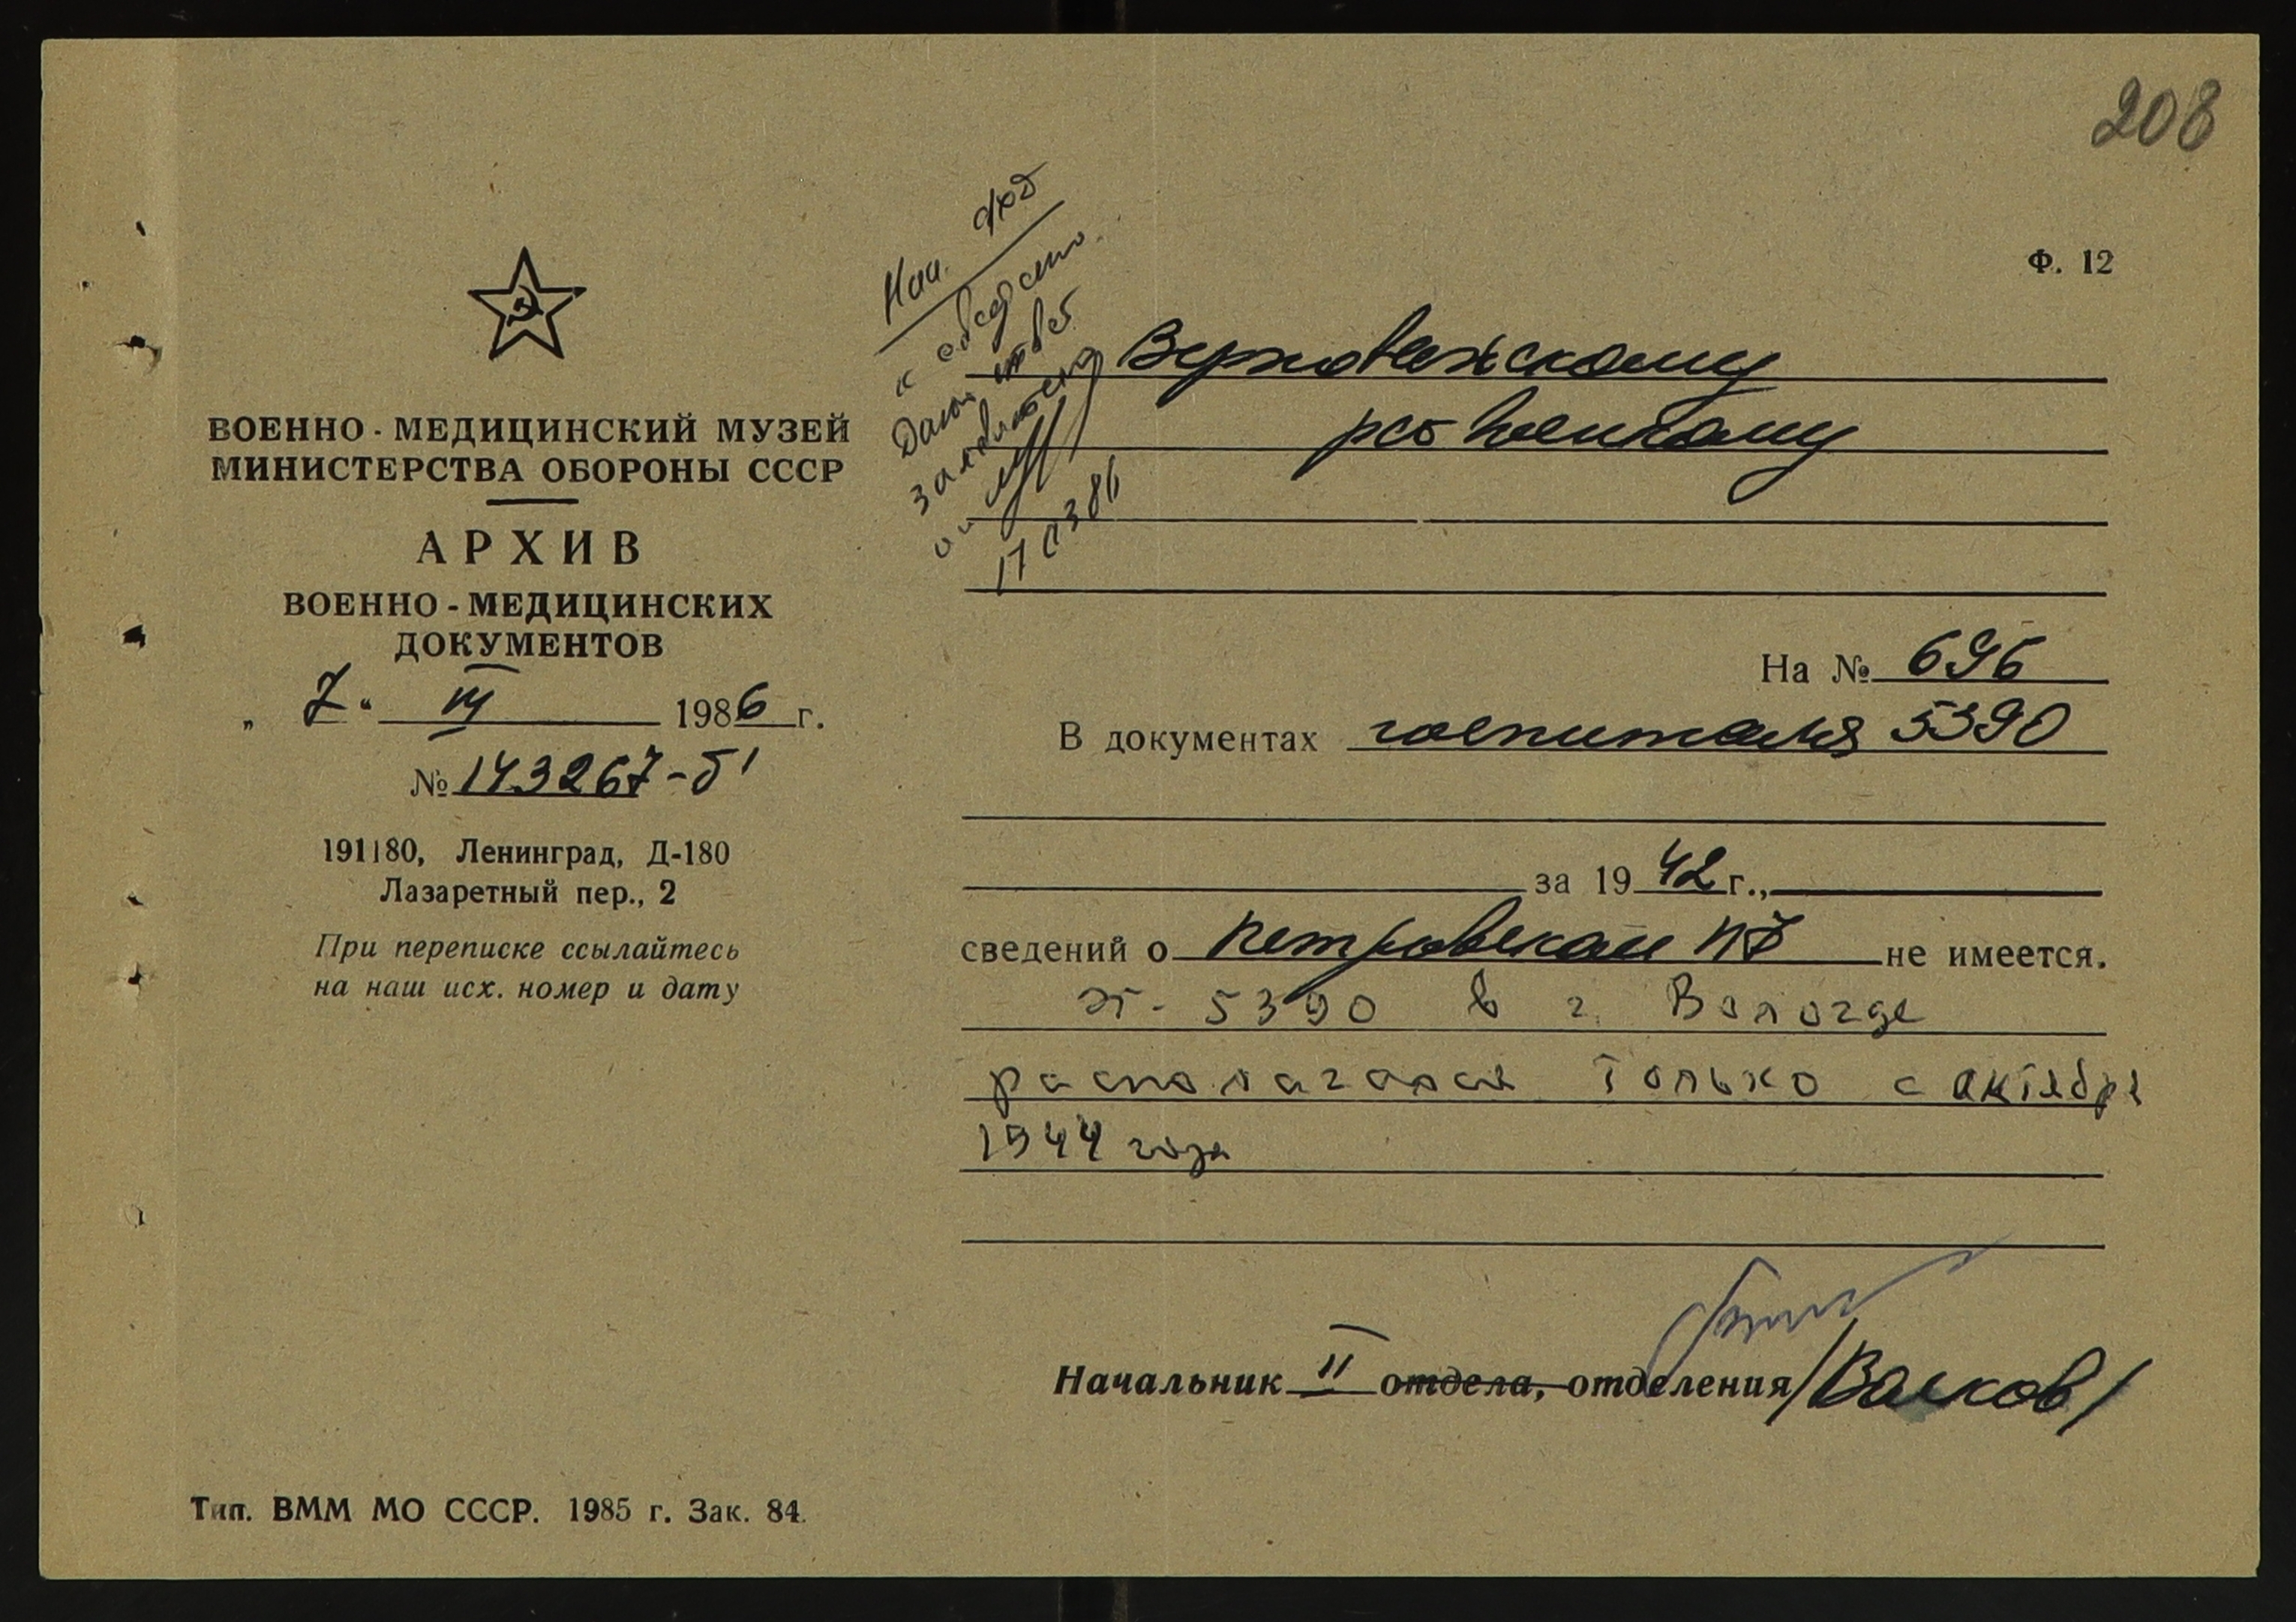 208
Ф. 12
ВОЕННО-МЕДИЦИНСКИЙ МУЗЕЙ
МИНИСТЕРСТВА ОБОРОНЫ СССР
АРХИВ
ВОЕННО-МЕДИЦИНСКИХ
ДОКУМЕНТОВ
„ 7 “ III 1986 г.
№ 143267-б'
191180, Ленинград, Д-180
Лазаретный пер., 2
При переписке ссылайтесь
на наш исх. номер и дату
Тип. ВММ МО СССР. 1985 г. Зак. 84.
к сведению.
Дать ответ
заявителю
17 03 86
Верховажскому
военкому
На № 696
В документах госпиталя 5390
за 1942 г.,
сведений о Петровском не имеется.
ЭГ- 5390 в г. Вологде
располагался только с октября
1944 года
Начальник II отдела, отделения /Волков/